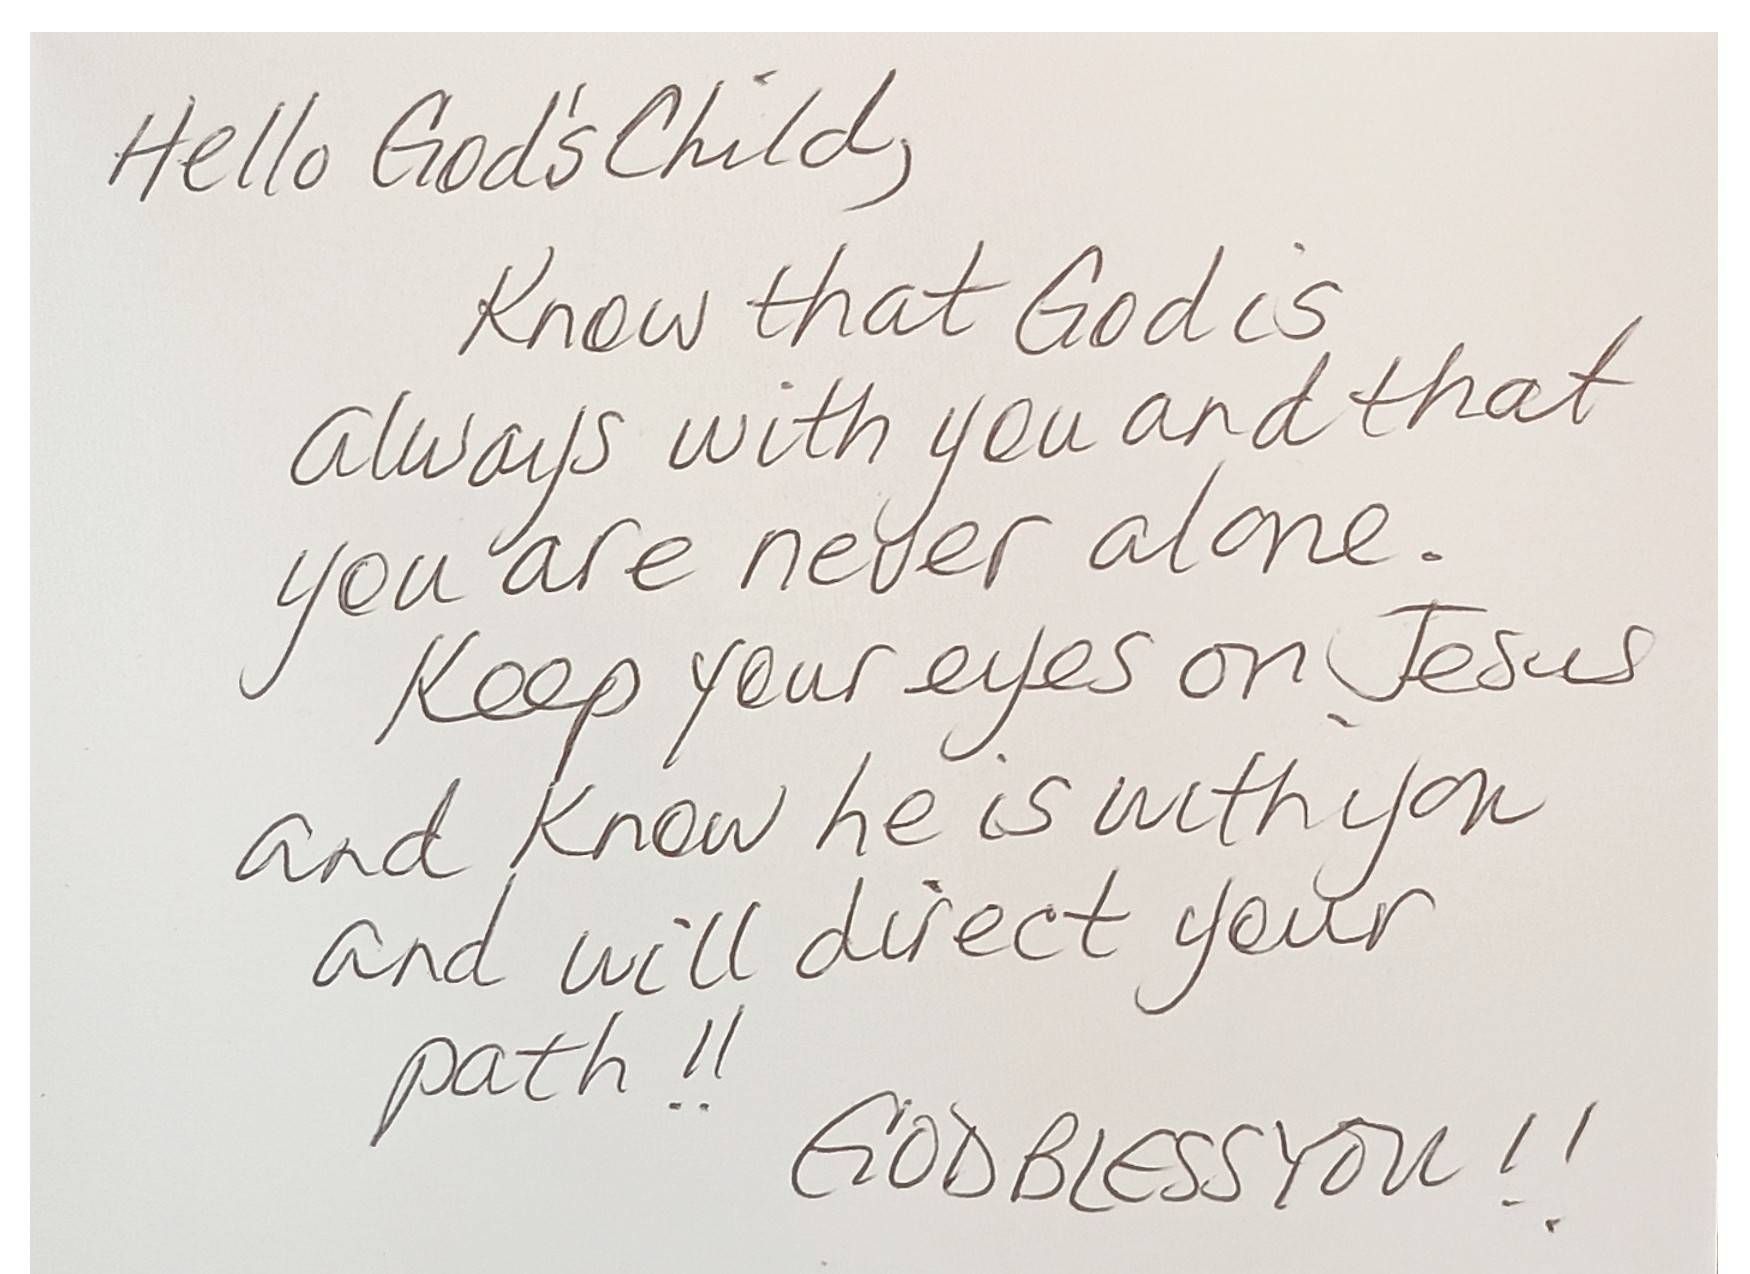 Hello God's Child,
Know that God is
always with you and that
you are never alone.
Keep your eyes on Jesus
and know he is with you
and will direct your
path!!
GOD BLESS YOU!!